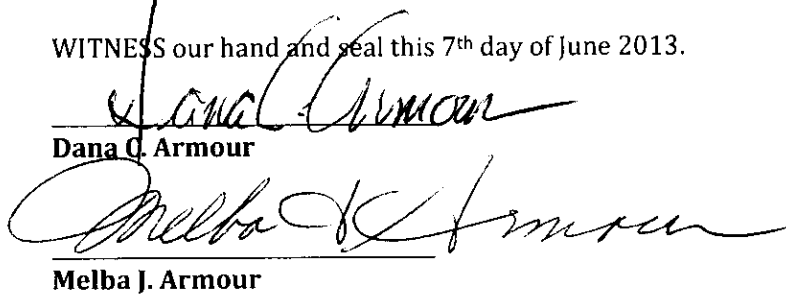 WITNESS our hand and seal this 7th day of June 2013.
Dana C. Armour
Dana C. Armour
Melba J. Armour
Melba J. Armour